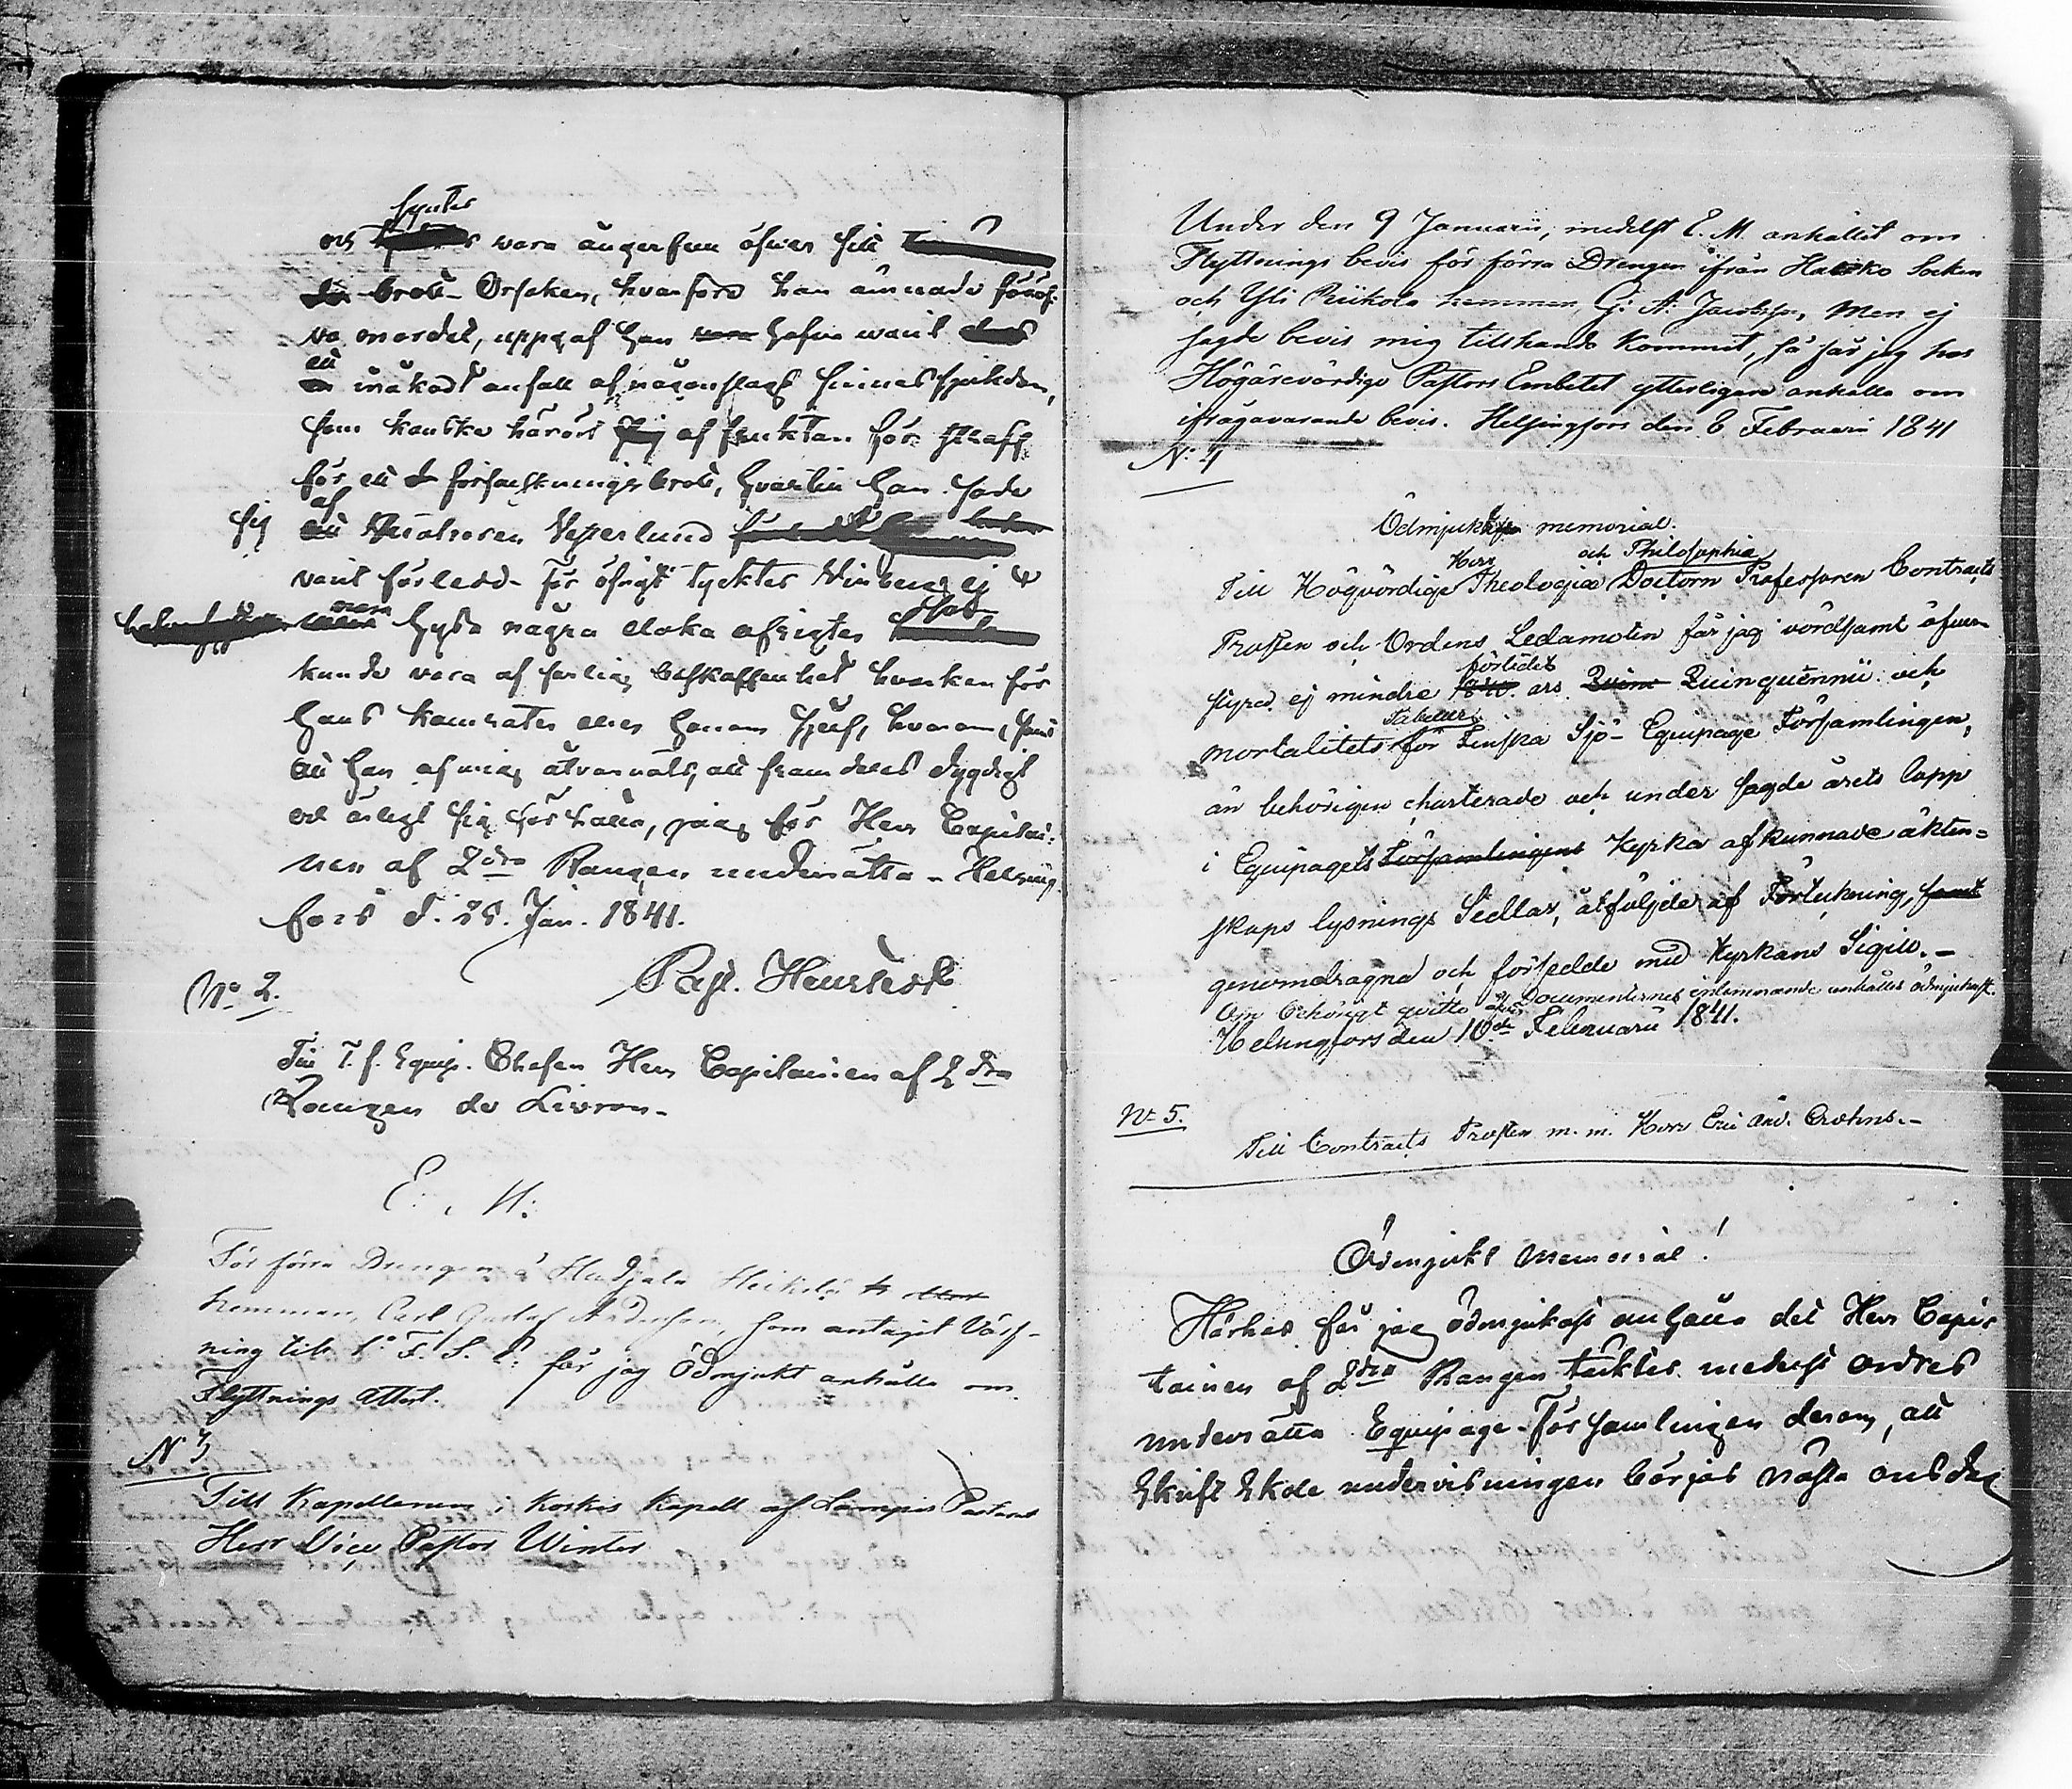 syntes
och vara ångerfull öfver sitt
brott. Orsaken, hvarföre han ämnade föröf-
va mordet, uppgaf han hafva varit
ett
oväkadt anfall af någonslags sinnessjukdom,
som kanske härört af fruktan för straff
för ett förfalskningsbrott, hvartill han hade
sig af Vesterlund
varit förledd. För öfrigt tycktes Winberg ej
mera hysa några elaka afsigter som
kunde vara af farlig beskaffenhet hvarken för
hans kamrater eller honom sjelf, hvarom, samt
att han af mig åtvarnats, att framdeles dygdigt
och ärligt sig förhålla, jag får Herr Capitai-
nen af 2dra Rangen underrätta. Helsing-
fors d. 25. Jan. 1841.
Past. Henriksson
No 2.
Till T. f. Equip. Chefen Herr Capitainen af 2dra
Rangen de Livron.
E. M:
För förra Drengen å Heikola
hemman, Carl Gustaf Andersson, som antagit Värf-
ning till 1: F. S. E: får jag Ödmjukt anhålla om
Flyttnings Attest.
N 3
Till Kapellanen i Koskis Kapell af Lampis Pastorat
Herr Vice Pastor Winter
Under den 9 Januarii, medelst E. M. anhållit om
Flyttnings bevis för förra Drengen ifrån Hausko Socken
och Yli Riikola hemman, G. A. Jacobsson, Men ej
sagde bevis mig tillhanda kommit, så får jag hos
Högärevördige Pastors Embetet ytterligare anhålla om
ifrågavarande bevis. Helsingfors den 6 Februarii 1841
No 4
Ödmjukt memorial.
Herr och Philosophiæ
Till Högvördige Theologiæ Doctorn Professoren Contracts
Prosten och Ordens Ledamoten får jag vördsamt öfver-
förlidet
styra ej mindre 1840 års Quin Quinquennii och
Tabeller
mortalitets för Finska Sjö-Equipage Församlingen,
än behörigen charterade och under sagde årets lopp
i Equipagets Församlingens Kyrka afkunnade äkten-
skaps lysnings Sedlar, åtföljda af Förteckning, samt
genomdragna och försedde med Kyrkans Sigill. -
Om behörigt qvitto å Documenternes inlemnande anhålles ödmjukast.
Helsingfors den 10de Februarii 1841.
No 5.
Till Contracts Prosten m. m. Herr Eric And. Crohns. -
Ödmjukt Memorial!
Härhos får jag ödmjukast anhålla det Herr Capi-
tainen af 2dra Rangen täcktes medelst ordres
underrätta Equipage-Församlingen derom, att
Skrift Skole undervisningen börjas nästa onsdag